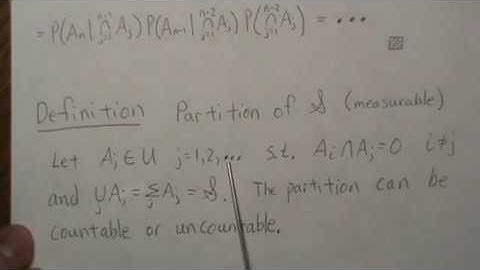 = P(Aₙ | ⋂ⱼ₌₁ⁿ⁻¹ Aⱼ) P(Aₙ₋₁ | ⋂ⱼ₌₁ⁿ⁻² Aⱼ) P(⋂ⱼ₌₁ⁿ⁻² Aⱼ) = •••
Definition Partition of 𝒮 (measurable)
Let Aⱼ ∈ U j=1,2,••• s.t. Aᵢ ∩ Aⱼ = 0 i≠j
and ⋃ⱼ Aⱼ = Σⱼ Aⱼ = 𝒮. The partition can be
countable or uncountable.